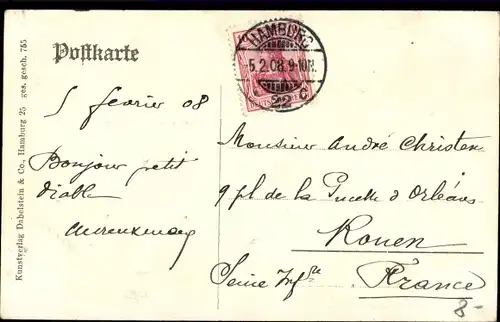 Postkarte
HAMBURG
5.2.08.9-10N.
22 c
5 février 08
Bonjour petit
diable
Monsieur André Christen
9 pl de la Pucelle d'Orléans
Rouen
Seine Infre
France
8-
Kunstverlag Dabelstein & Co., Hamburg 25 ges. gesch. 755.